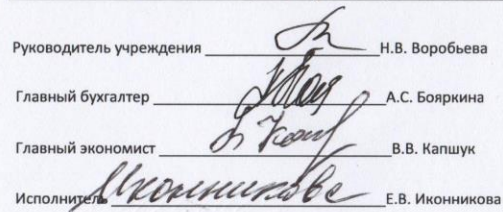 Руководитель учреждения Н.В. Воробьева
Главный бухгалтер А.С. Бояркина
Главный экономист В.В. Капшук
Исполнитель Иконникова Е.В. Иконникова